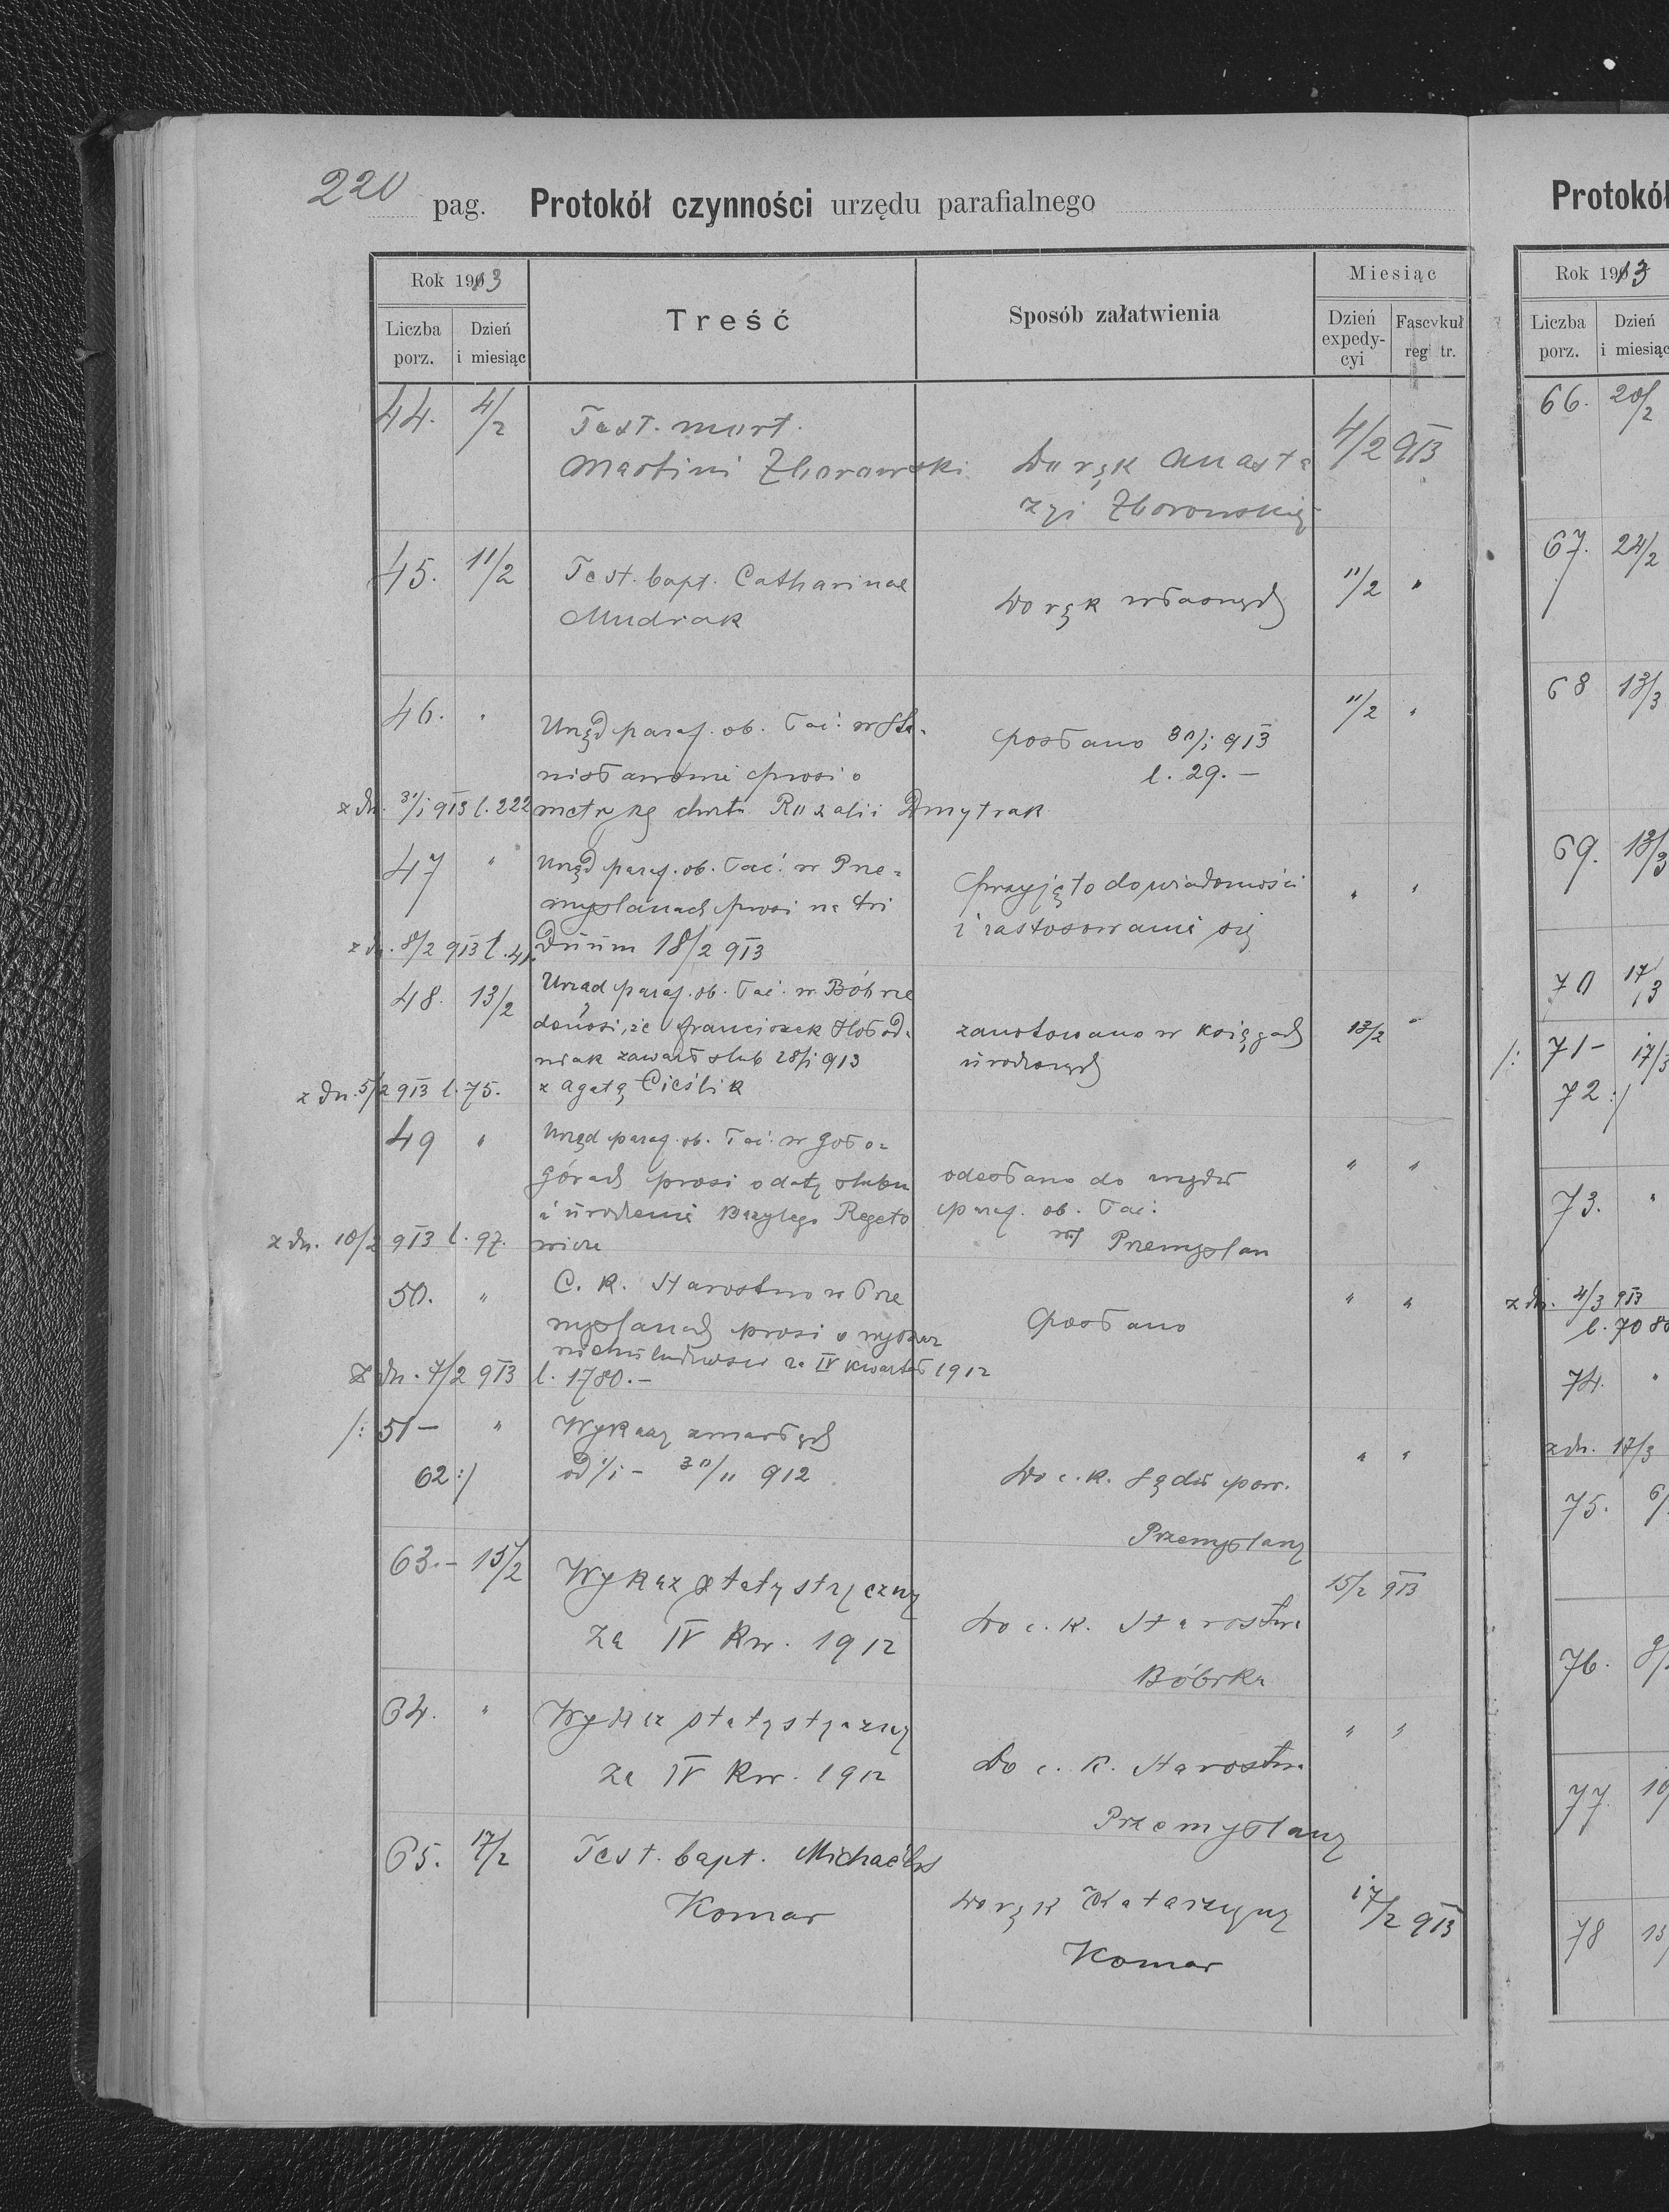 220 pag. Protokół czynności urzędu parafialnego
Rok 1913
Liczba porz.
Dzień i miesiąc
Treść
Sposób załatwienia
Miesiąc
Dzień expedycyi
Fascykuł
44. 4/2 Test. mort.
Martini Zborowski Do rąk Anasta 4/2 913
zyi Zborowskiej
45. 11/2 Test. bapt. Catharinae
Mudrak Do rąk własnych 11/2 "
46. " Urząd paraf. ob. łać. w Sta- posłano 30/i 913 11/2 "
nisławowie prosi o l. 29. —
z dn. 31/i 913 l. 222 metrykę chrztu Rozalii Dmytrak
47 " Urząd paraf. ob. łać. w Prze-
myślanach prosi na tri przyjęto do wiadomości " "
z dn. 8/2 913 l. 41. Duum 18/2 913 i zastosowania się
48. 13/2 Urząd paraf. ob. łać. w Bóbrce
donosi, że Franciszek Hołod- zanotowano w księgach 13/2 "
niak zawarł ślub 28/i 913 urodzonych
z dn. 5/2 913 l. 75. z Agatą Cieślik
49 " Urząd paraf. ob. łać. w Goło-
górach prosi o datę ślubu odesłano do urzędu " "
i urodzenia Bazylego Regeto paraf. ob. łać.
z dn. 10/2 913 l. 97. wicza w Przemyślan
50. " C. K. Starostwo w Prze " "
myślanach prosi o wykaz posłano
ruchu ludności za IV kwartał 1912
z dn. 7/2 913 l. 1780. —
/: 51 — " Wykazy zmarłych
62 :/ od 1/i — 30/11 912 Do c. k. Sądu pow. " "
Przemyślany
63. — 15/2 Wykaz statystyczny 15/2 913
za IV kw. 1912 Do c. k. Starostwa
Bóbrka
64. " Wykaz statystyczny " "
za IV kw. 1912 Do c. k. Starostwa
Przemyślany
65. 17/2 Test. bapt. Michaëlis
Komar Do rąk Katarzyny 17/2 913
Komar
Protokół
Rok 1913
Liczba porz.
Dzień i miesiąc
66. 20/2
67. 24/2
68 13/3
69. 13/3
70 17/3
/: 71 — 17/3
72 :/
73. "
z dn. 4/3 913
l. 7080
74. "
z dn. 17/3
75.
76.
77.
78